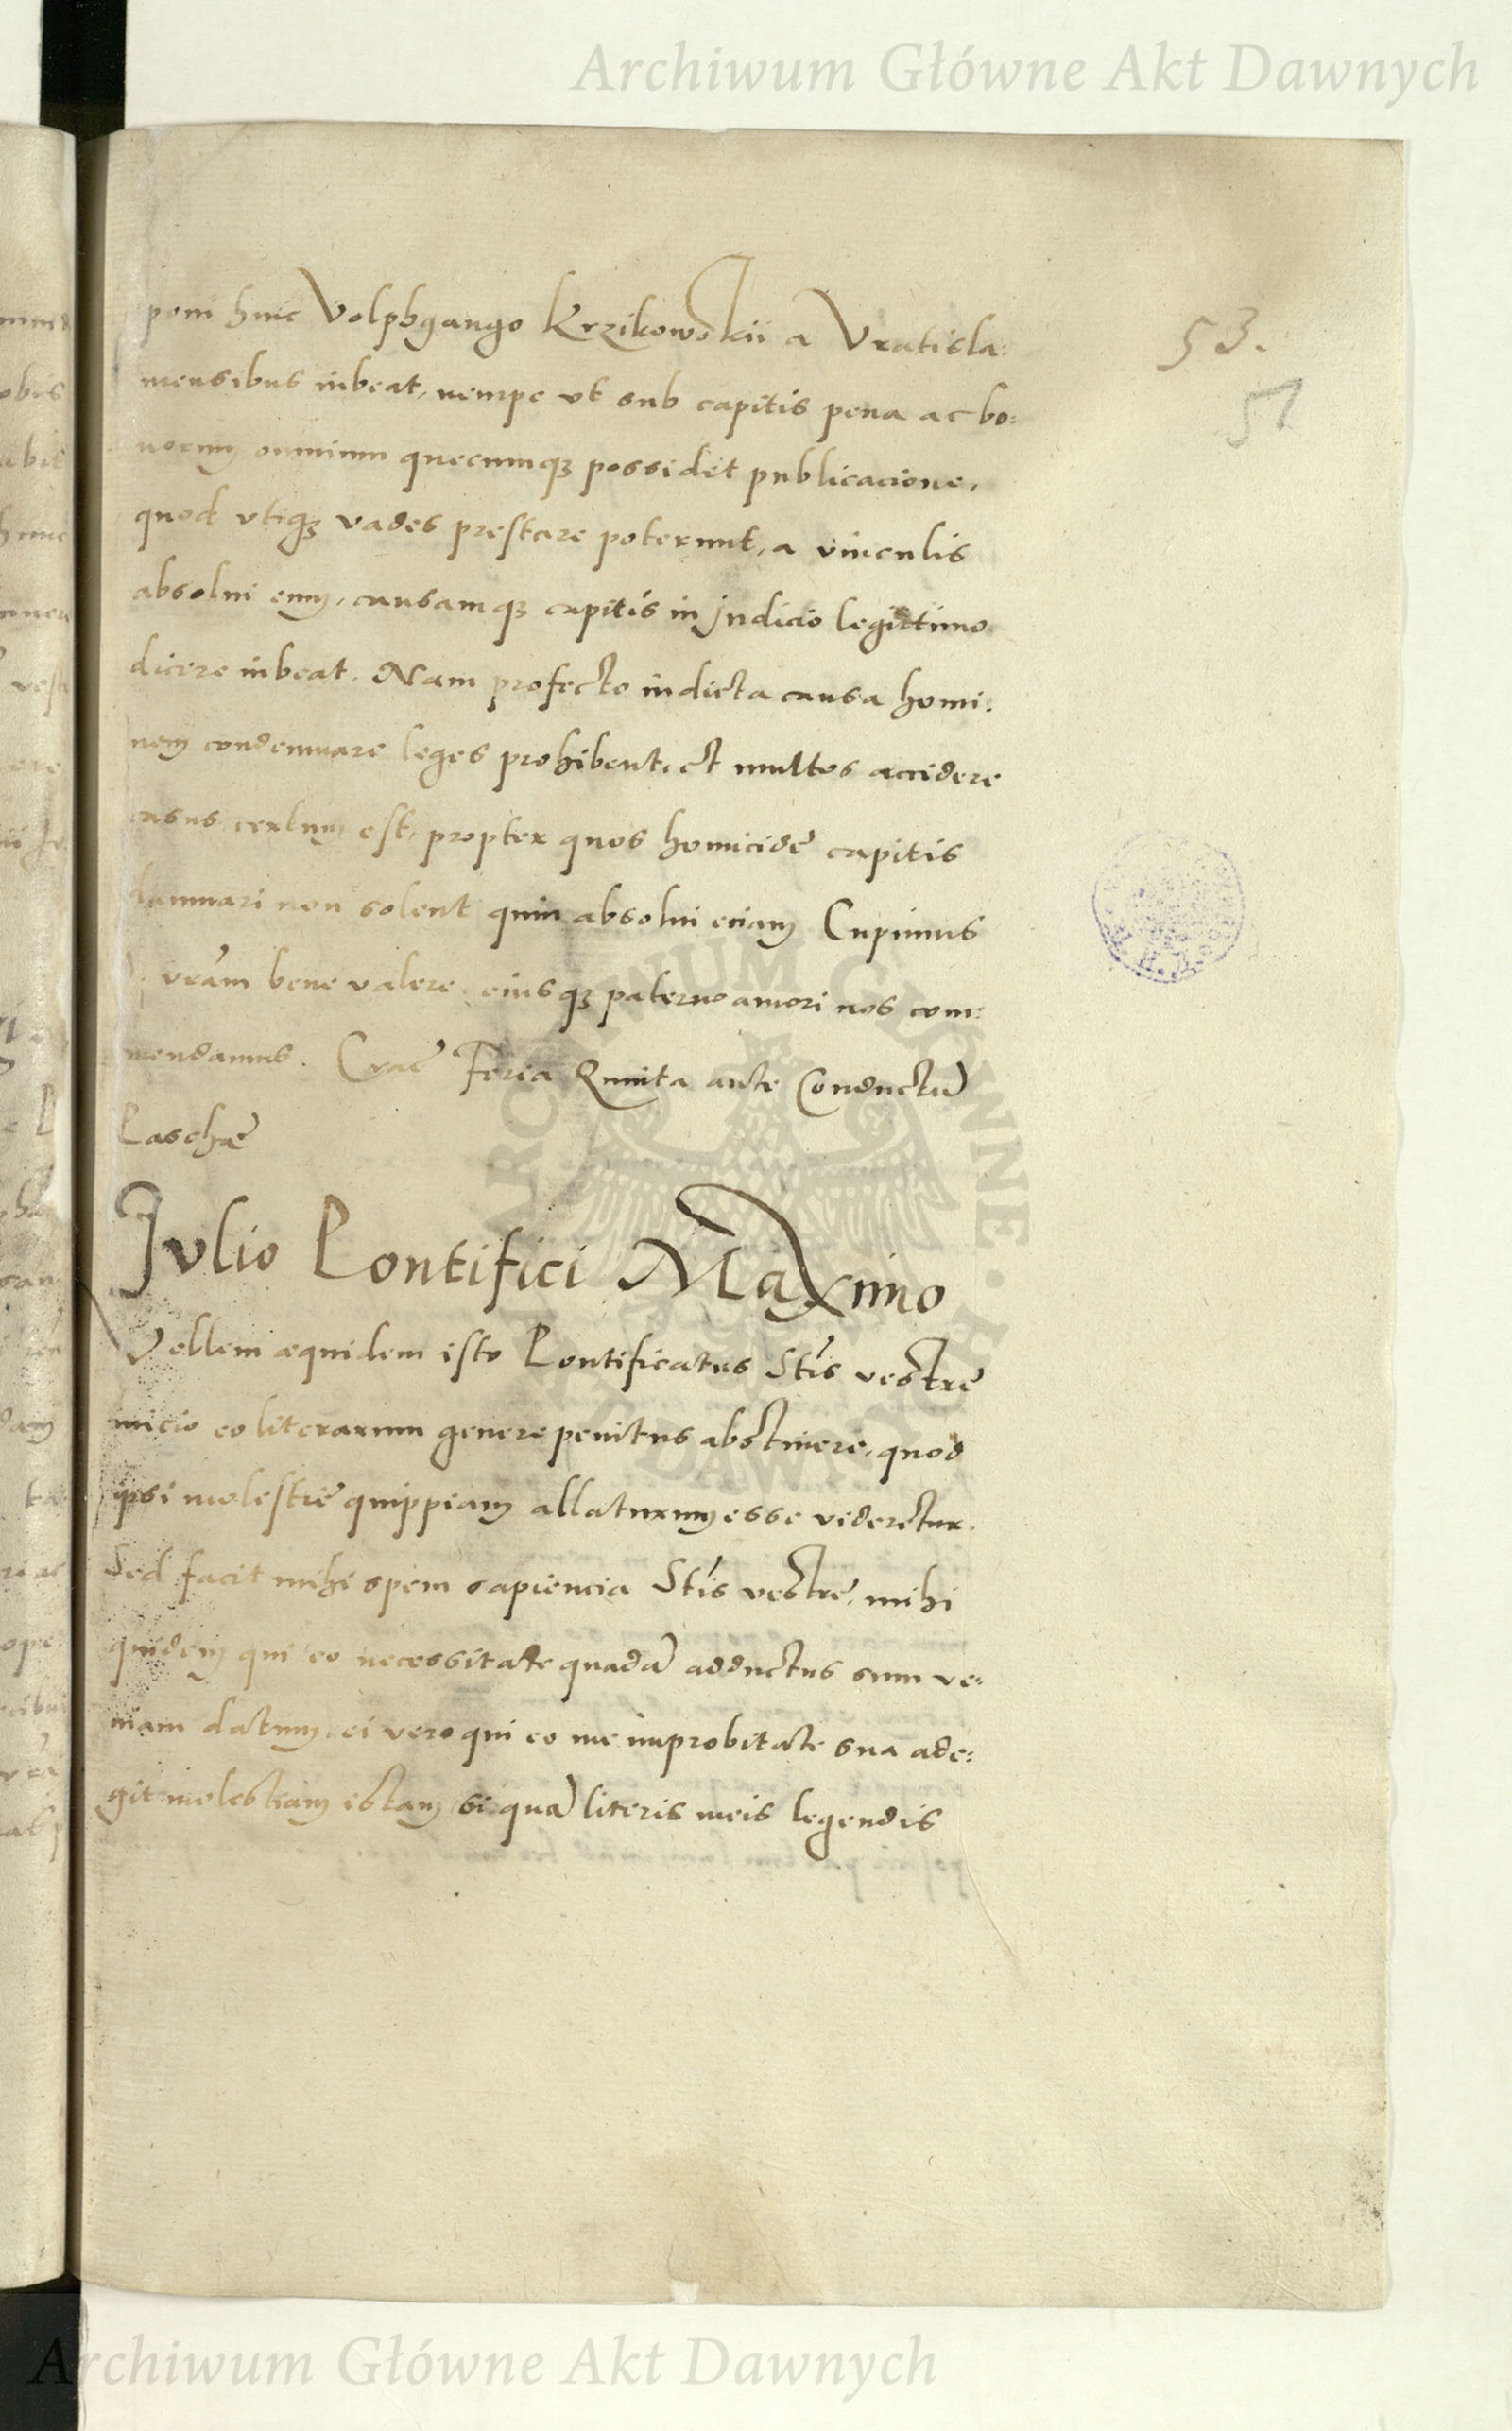 Archiwum Główne Akt Dawnych
53.
51
poni huic Volphgango Krzikowskii a Vratisla:
niensibus iubeat, nempe vt sub capitis pena ac bo:
norum omnium quecumqꝫ possidet publicacione,
quod vtiqꝫ vades prestare poterunt, a vinculis
absolui eum, causamqꝫ capitis in judicio legittimo
dicere iubeat. Nam profecto indicta causa homi:
nem condemnare leges prohibent, et multos accidere
casus certum est, propter quos homicidę capitis
damnari non solent quin absolui eciam Cupimus
vram bene valere, eiusqꝫ paterno amori nos com:
mendamus. Crac Feria Quinta ante Conductū
Paschę
Julio Pontifici Maximo
Vellem æquidem isto Pontificatus Stis vestrę
inicio eo literarum genere penitus abstinere, quod
ipsi molestię quippiam allaturum esse videretur.
Sed facit mihi spem sapiencia Stis vestrę, mihi
quidem qui eo necessitate quadā adductus sum ve:
niam datum, ei vero qui eo me improbitate sua ade:
git molestiam istam si quā literis meis legendis
ARCHIWUM GŁÓWNE AKT DAWNYCH
Archiwum Główne Akt Dawnych